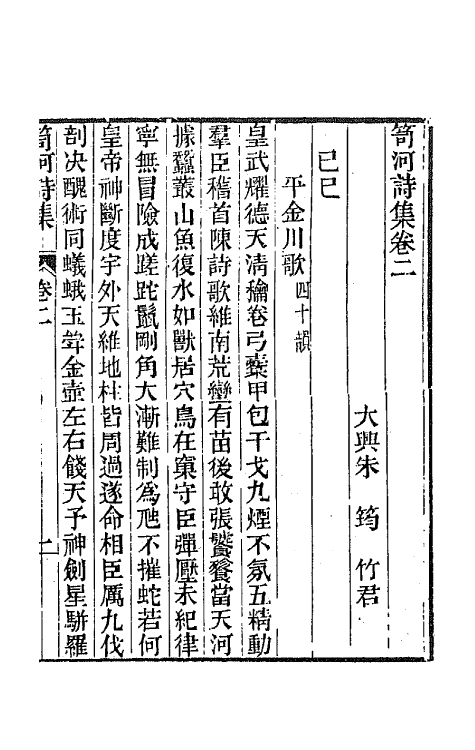 笥河詩集卷二
大興朱筠竹君
己巳
平金川歌四十韻
皇武燿德天清穐卷弓櫜甲包干戈九煙不氛五精動
羣臣稽首陳詩歌維南荒蠻有苗後敢張饕餮當天河
據蠶叢山魚復水如獸居穴鳥在窠守臣彈壓未紀律
寧無冒險成蹉跎鬣剛角大漸難制為虺不摧蛇若何
皇帝神斷度宇外天維地柱皆周過遂命相臣厲九伐
剖决醜術同蟻蛾玉斝金壺左右餞天予神劍星駢羅
笥河詩集 卷二 一